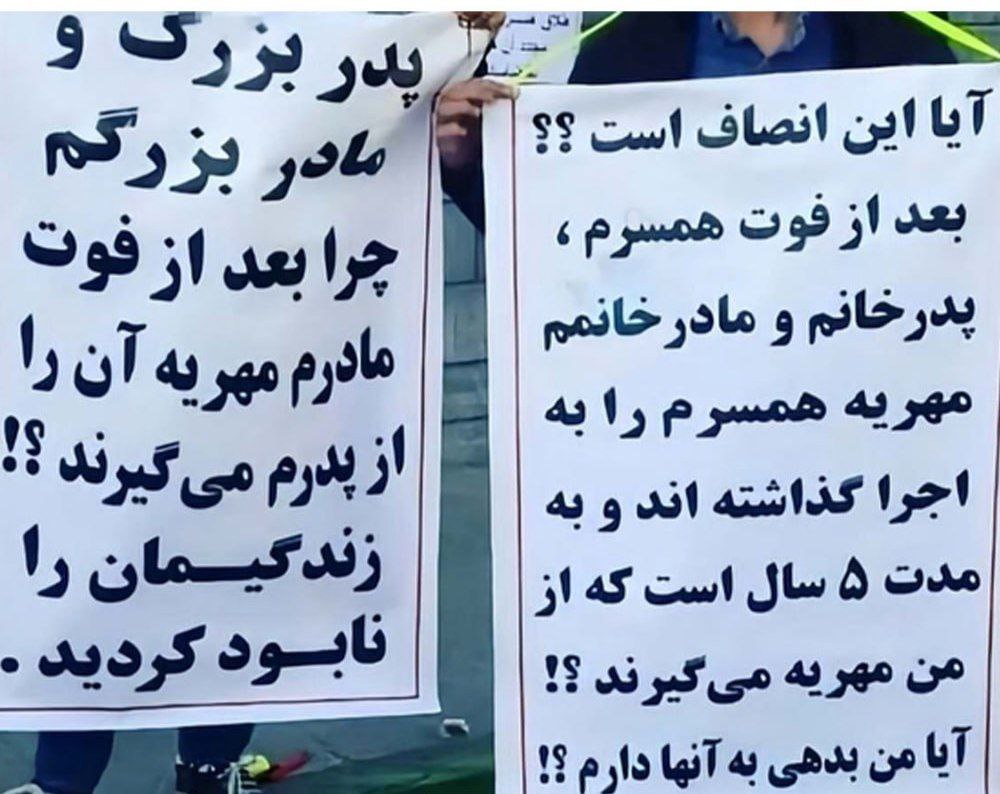 آیا این انصاف است ؟؟
بعد از فوت همسرم ،
پدرخانم و مادرخانمم
مهریه همسرم را به
اجرا گذاشته اند و به
مدت ۵ سال است که از
من مهریه می‌گیرند ؟!
آیا من بدهی به آنها دارم ؟!
پدر بزرگ و
مادر بزرگم
چرا بعد از فوت
مادرم مهریه آن را
از پدرم می‌گیرند ؟!
زندگیـمان را
نابـود کردید .